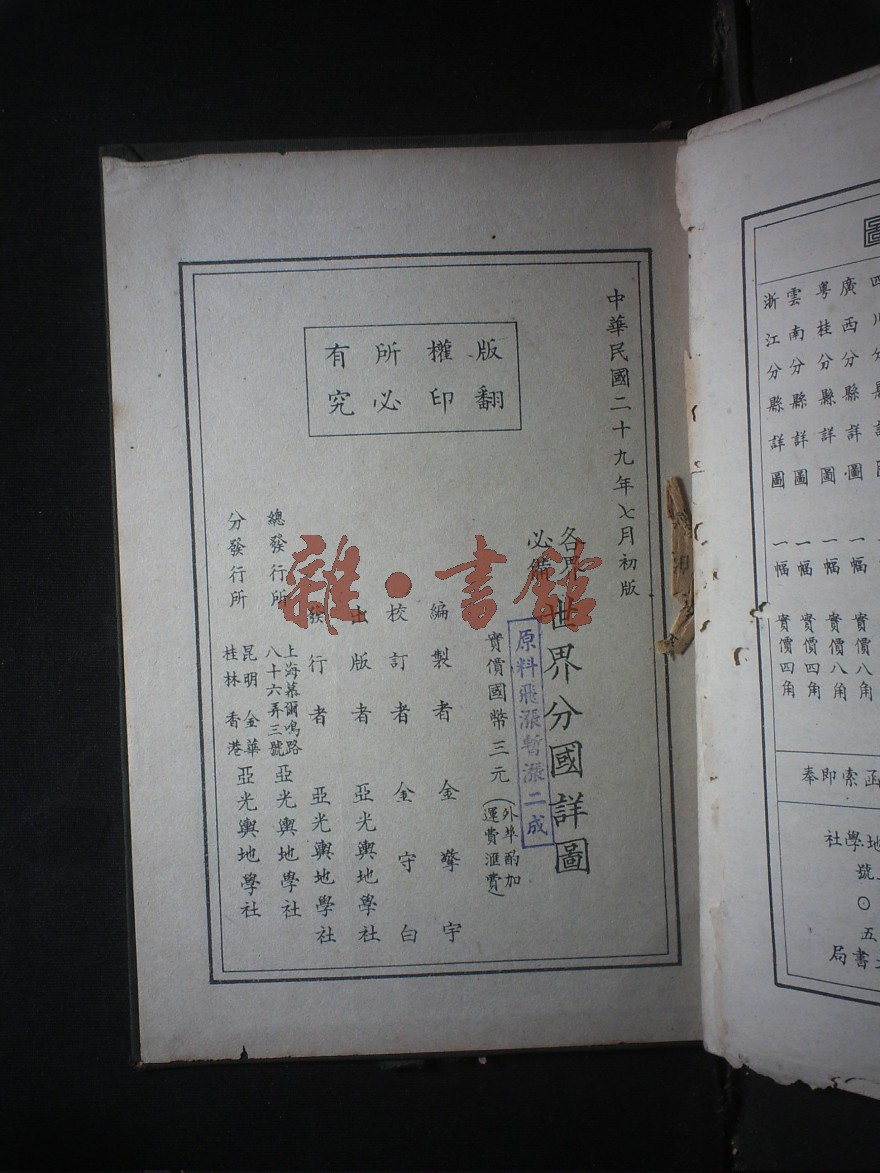 中華民國二十九年七月初版
各界必備
世界分國詳圖
原料飛漲暫漲二成
實價國幣三元
(外埠酌加運費滙費)
編製者 金擎宇
校訂者 金守白
出版者 亞光輿地學社
發行者 亞光輿地學社
總發行所
上海慕爾鳴路
八十六弄三號
亞光輿地學社
分發行所
昆明 金華
桂林 香港
亞光輿地學社
版權所有
翻印必究
雜·書館
圖
廣西分縣詳圖 一幅 實價八角
粵桂分縣詳圖 一幅 實價八角
雲南分縣詳圖 一幅 實價四角
浙江分縣詳圖 一幅 實價四角
函索即奉
地學社
號
〇
五
書局